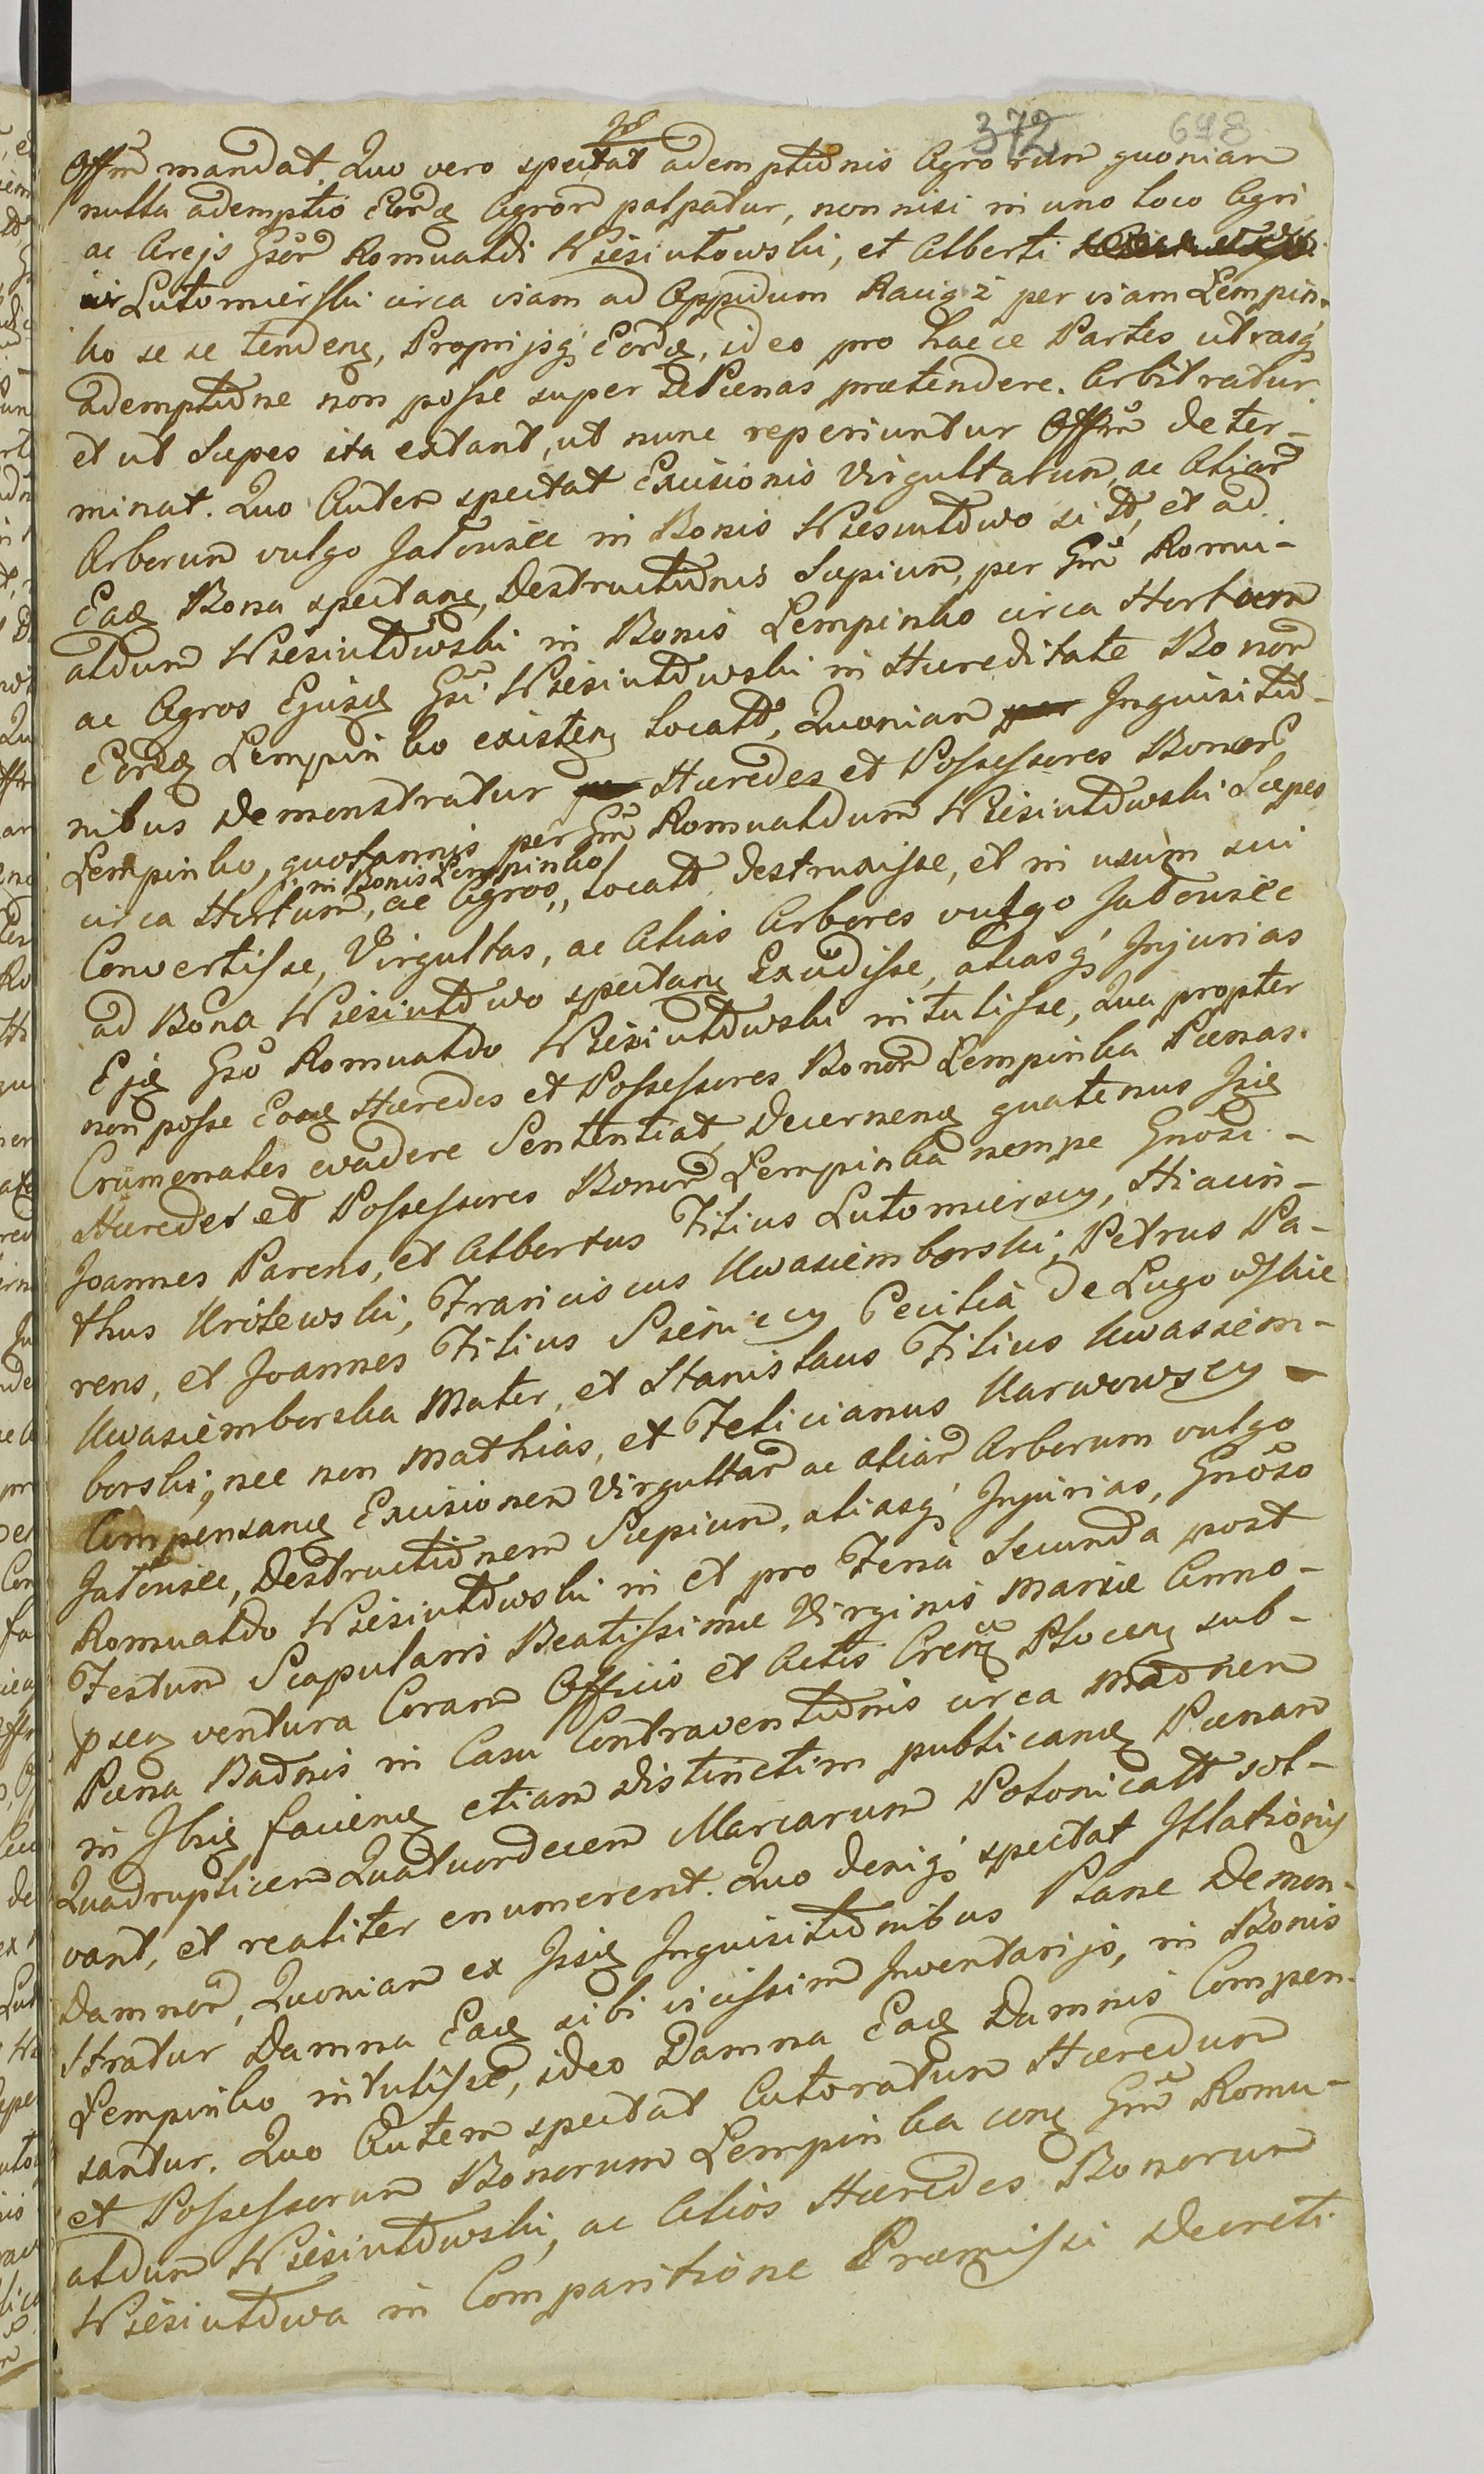 372 698
Offm̃ mandat. Quo vero spectat ademptionis Agrorum quoniam
nulla ademptio Eordẽ Agrorũ palpatur, non nisi in uno loco Agri
ac Arejs Gsorũ Romualdi Wiesiułowski, et Alberti
Lutomierski circa viam ad Oppidum Raciąż per viam Lempin-
ko se se tendenẽ, Proprijsq́ Eordẽ, ideo pro haece Partes utrasq́
ademptione non posse super se Pænas prætendere. Arbitratur
et ut Sepes ita extant, ut nunc reperiuntur Offm̃ deter-
minat. Quo Autem spectat Excisionis Virgultarum, ac Aliarũ
Arborum vulgo Jałousie in Bonis Wiesiułowo sitt, et ad
Eadẽ Bona spectanẽ, Destructionis Sepium, per Gm̃ Romu-
aldum Wiesiułowski in Bonis Lempinko circa Hortum
ac Agros Ejusdẽ Gsi Wiesiułowski in Hæreditate Bonorũ
Eordẽ Lempinko existenẽ locatt, Quoniam Inquisitio-
nibus Demonstratur Hæredes et Possessores Bonorũ
Lempinko, quotannis per Gm̃ Romualdum Wiesiułowski Sæpes
in Bonis Lempinko
circa Hortum, ac Agros,, locatt destruxisse, et in usum sui
Convertisse, Virgultas, ac Alias Arbores vulgo Jałousie
ad Bona Wiesiułowo spectanẽ Excidisse, aliasq́ Injurias
Ejdẽ Gso Romualdo Wiesiułowski intulisse, Qua propter
non posse Eosdẽ Hæredes et Possessores Bonorũ Lempinka Pænas
Criminales evadere Sententiat, Decernendẽ quatenus Jsidẽ
Hæredes et Possessores Bonorũ Lempinka nempe Gnosi
Joannes Parens, et Albertus Filius Lutomierscy, Hiacin-
thus Krolewski, Franciscus Kwasiemborski, Petrus Pa-
rens, et Joannes Filius Sieniccy Cecilia de Lugowskie
Kwasiemborska Mater, et Stanislaus Filius Kwassiem-
borski, nec non Mathias, et Felicianus Karwowscy
Compensandẽ Excisionem Virgultarũ ac aliarũ Arborum vulgo
Jałousie, Destructionem Sæpium, aliasq́ Injurias, Gnoso
Romualdo Wiesiułowski in et pro Feria Secunda post
Festum Scapularis Beatissimæ Virginis Mariæ Anno
pseñ ventura Coram Officio et Actis Creñ Ploceñ sub
Pæna Banonis in Casu Contraventionis circa
in Jbidẽ faciendẽ etiam distinctim publicandẽ Pænam
Quadruplicem Quatuordecem Marcarum Polonicatt sol-
vant, et realiter enumerent. Quo deniq́ spectat Jllationis
Damnorũ, Quoniam ex Jisdẽ Inquisitionibus Plane Demon-
stratur Damna Eadẽ sibi vicissim Inventarijs, in Bonis
Lempinko intulisse, ideo Damna Eadẽ Damnis Compen-
santur. Quo Autem spectat Actoratum Hæredum
et Possessorum Bonorum Lempinka conẽ Gm̃ Romu-
aldum Wiesiułowski, ac Alios Hæredes Bonorum
Wiesiułowa in Comparitione Præmissi Decreti